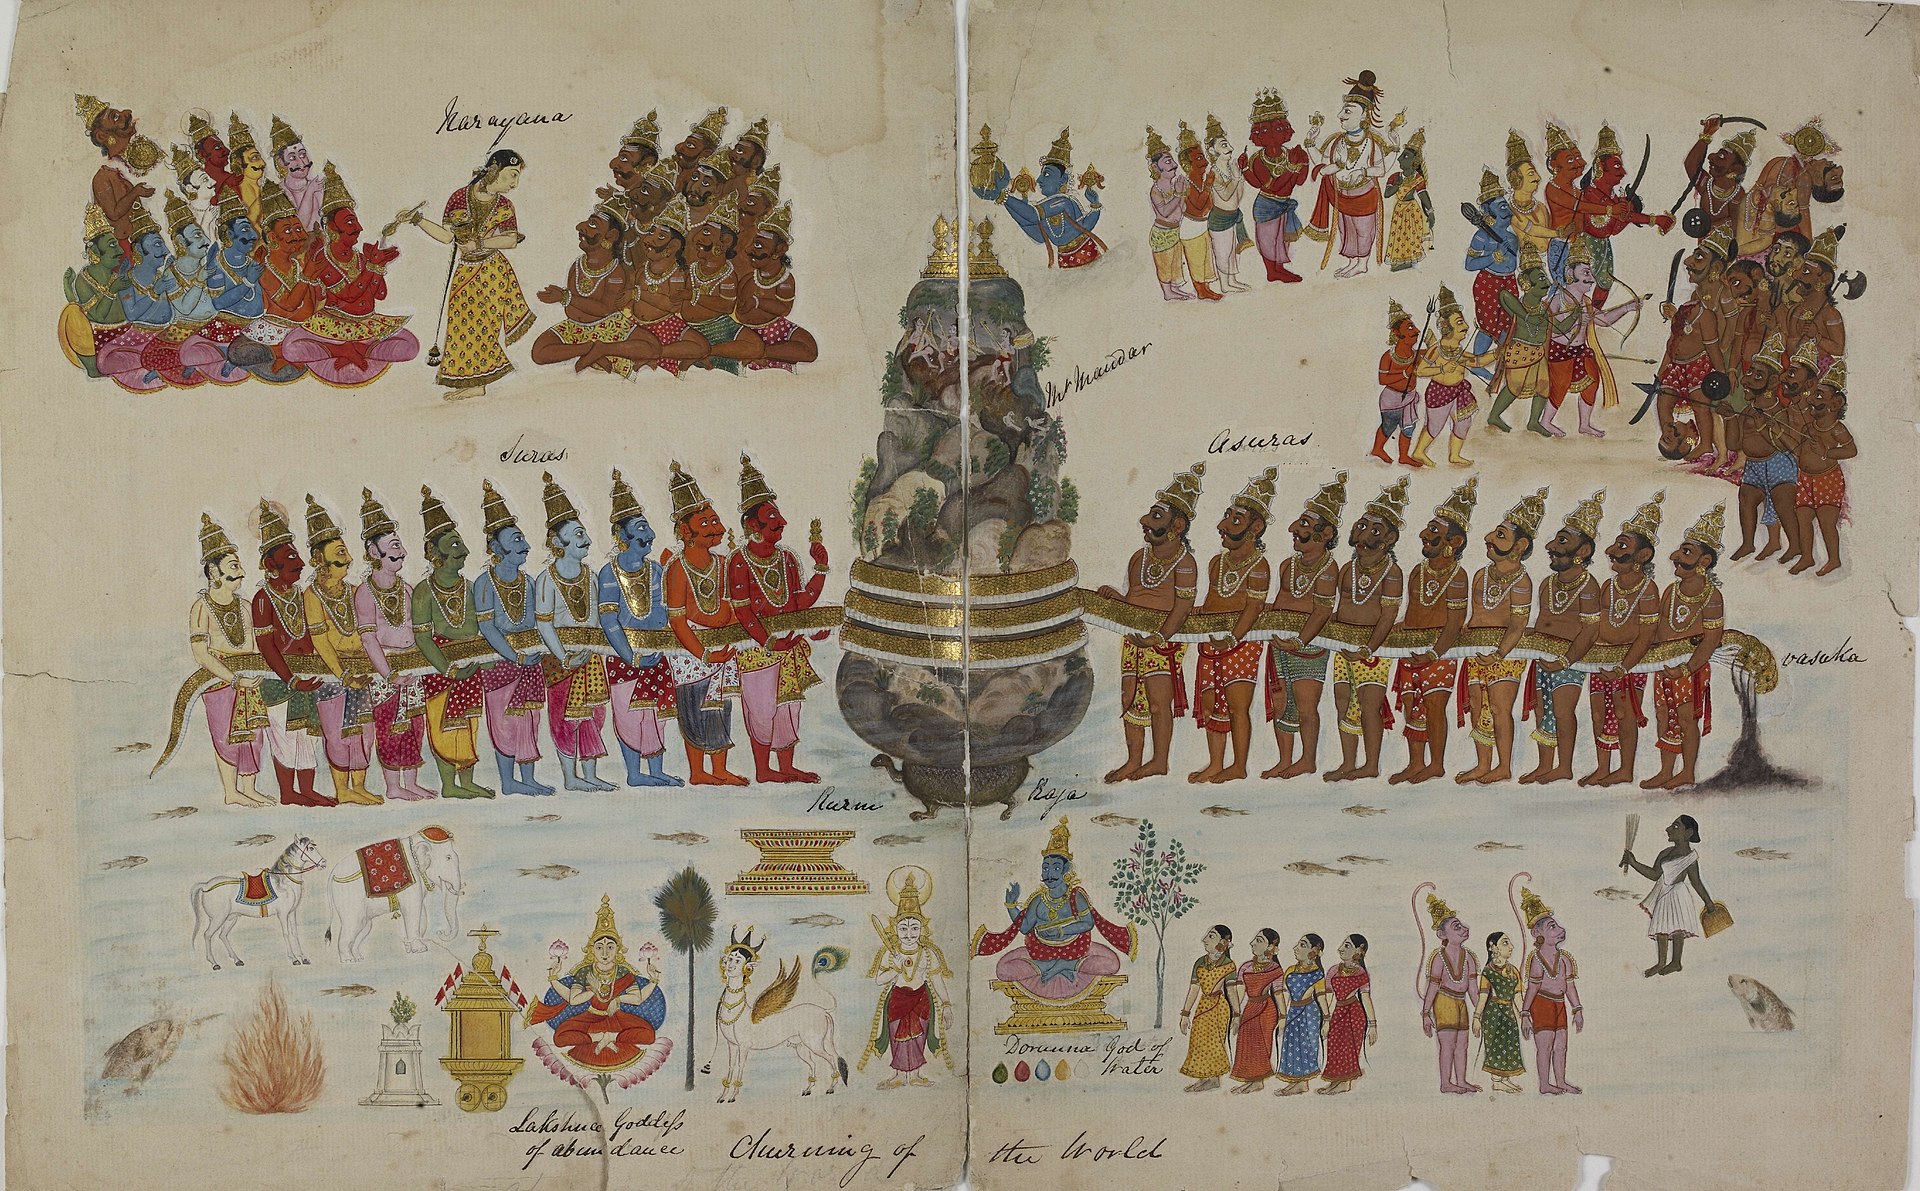 7
Narayana
Mt Mandar
Suras
Asuras
vasuka
Kurm Raja
Lakshmee Goddess
of abundance
God of
Water
Churning of the World